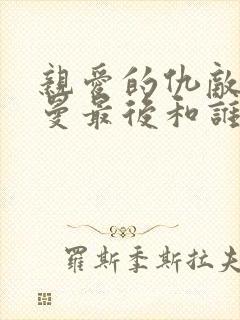 親愛的仇敵
曼最後和誰
羅斯季斯拉夫